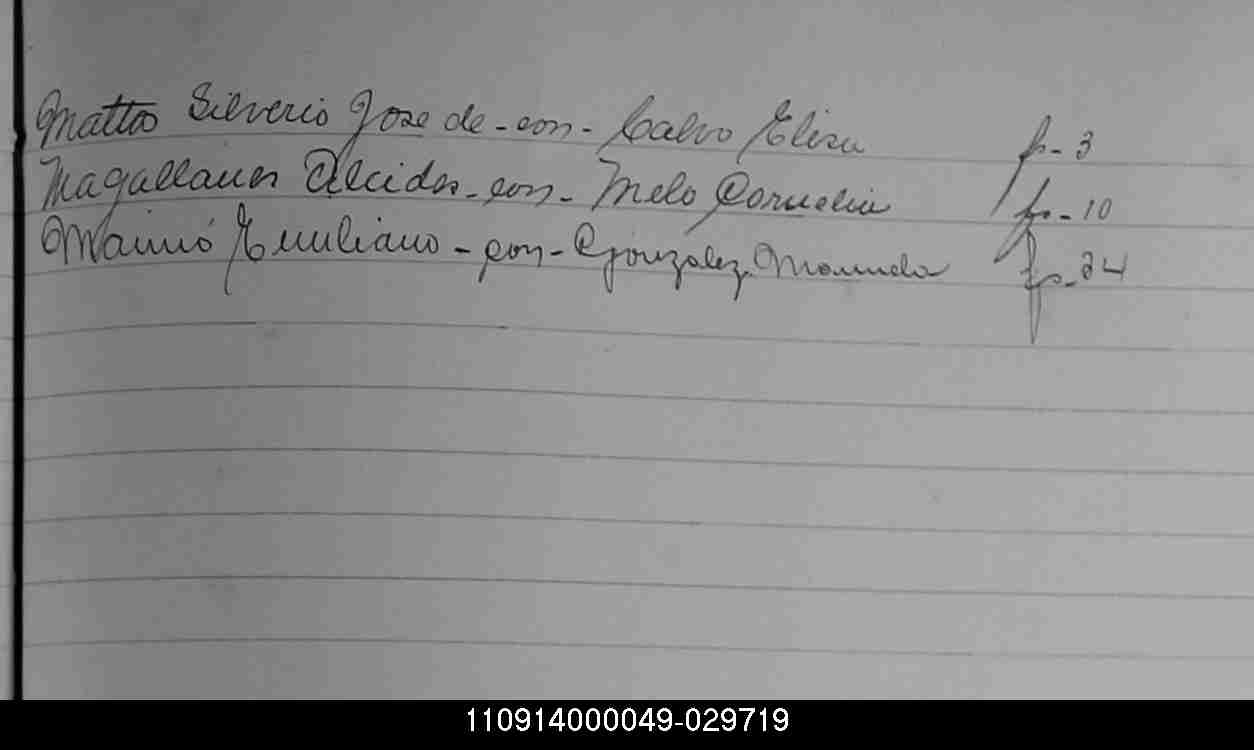 Mattos Silverio Jose de - con - Calvo Elisa fs - 3
Magallanes Alcides - con - Melo Cornelia fs - 10
Mainó Emiliano - con - Gonzalez Manuela fs - 24
110914000049-029719